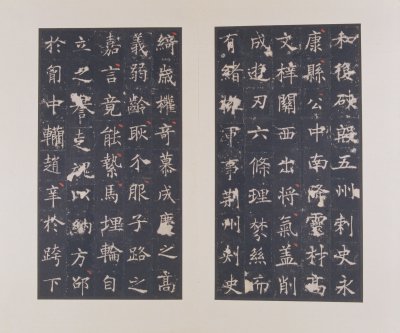 和復硤五州刺史永
康縣公中南降靈材高
文梓關西出將氣蓋削
成遊刃六條理棼絲而
有緒軍事荊州刺史
綺歲擢奇慕成慶之高
義弱齡耿介服子路之
嘉言竟能縶馬埋輪自
立之納方邵
於匈中轥趙辛於跨下